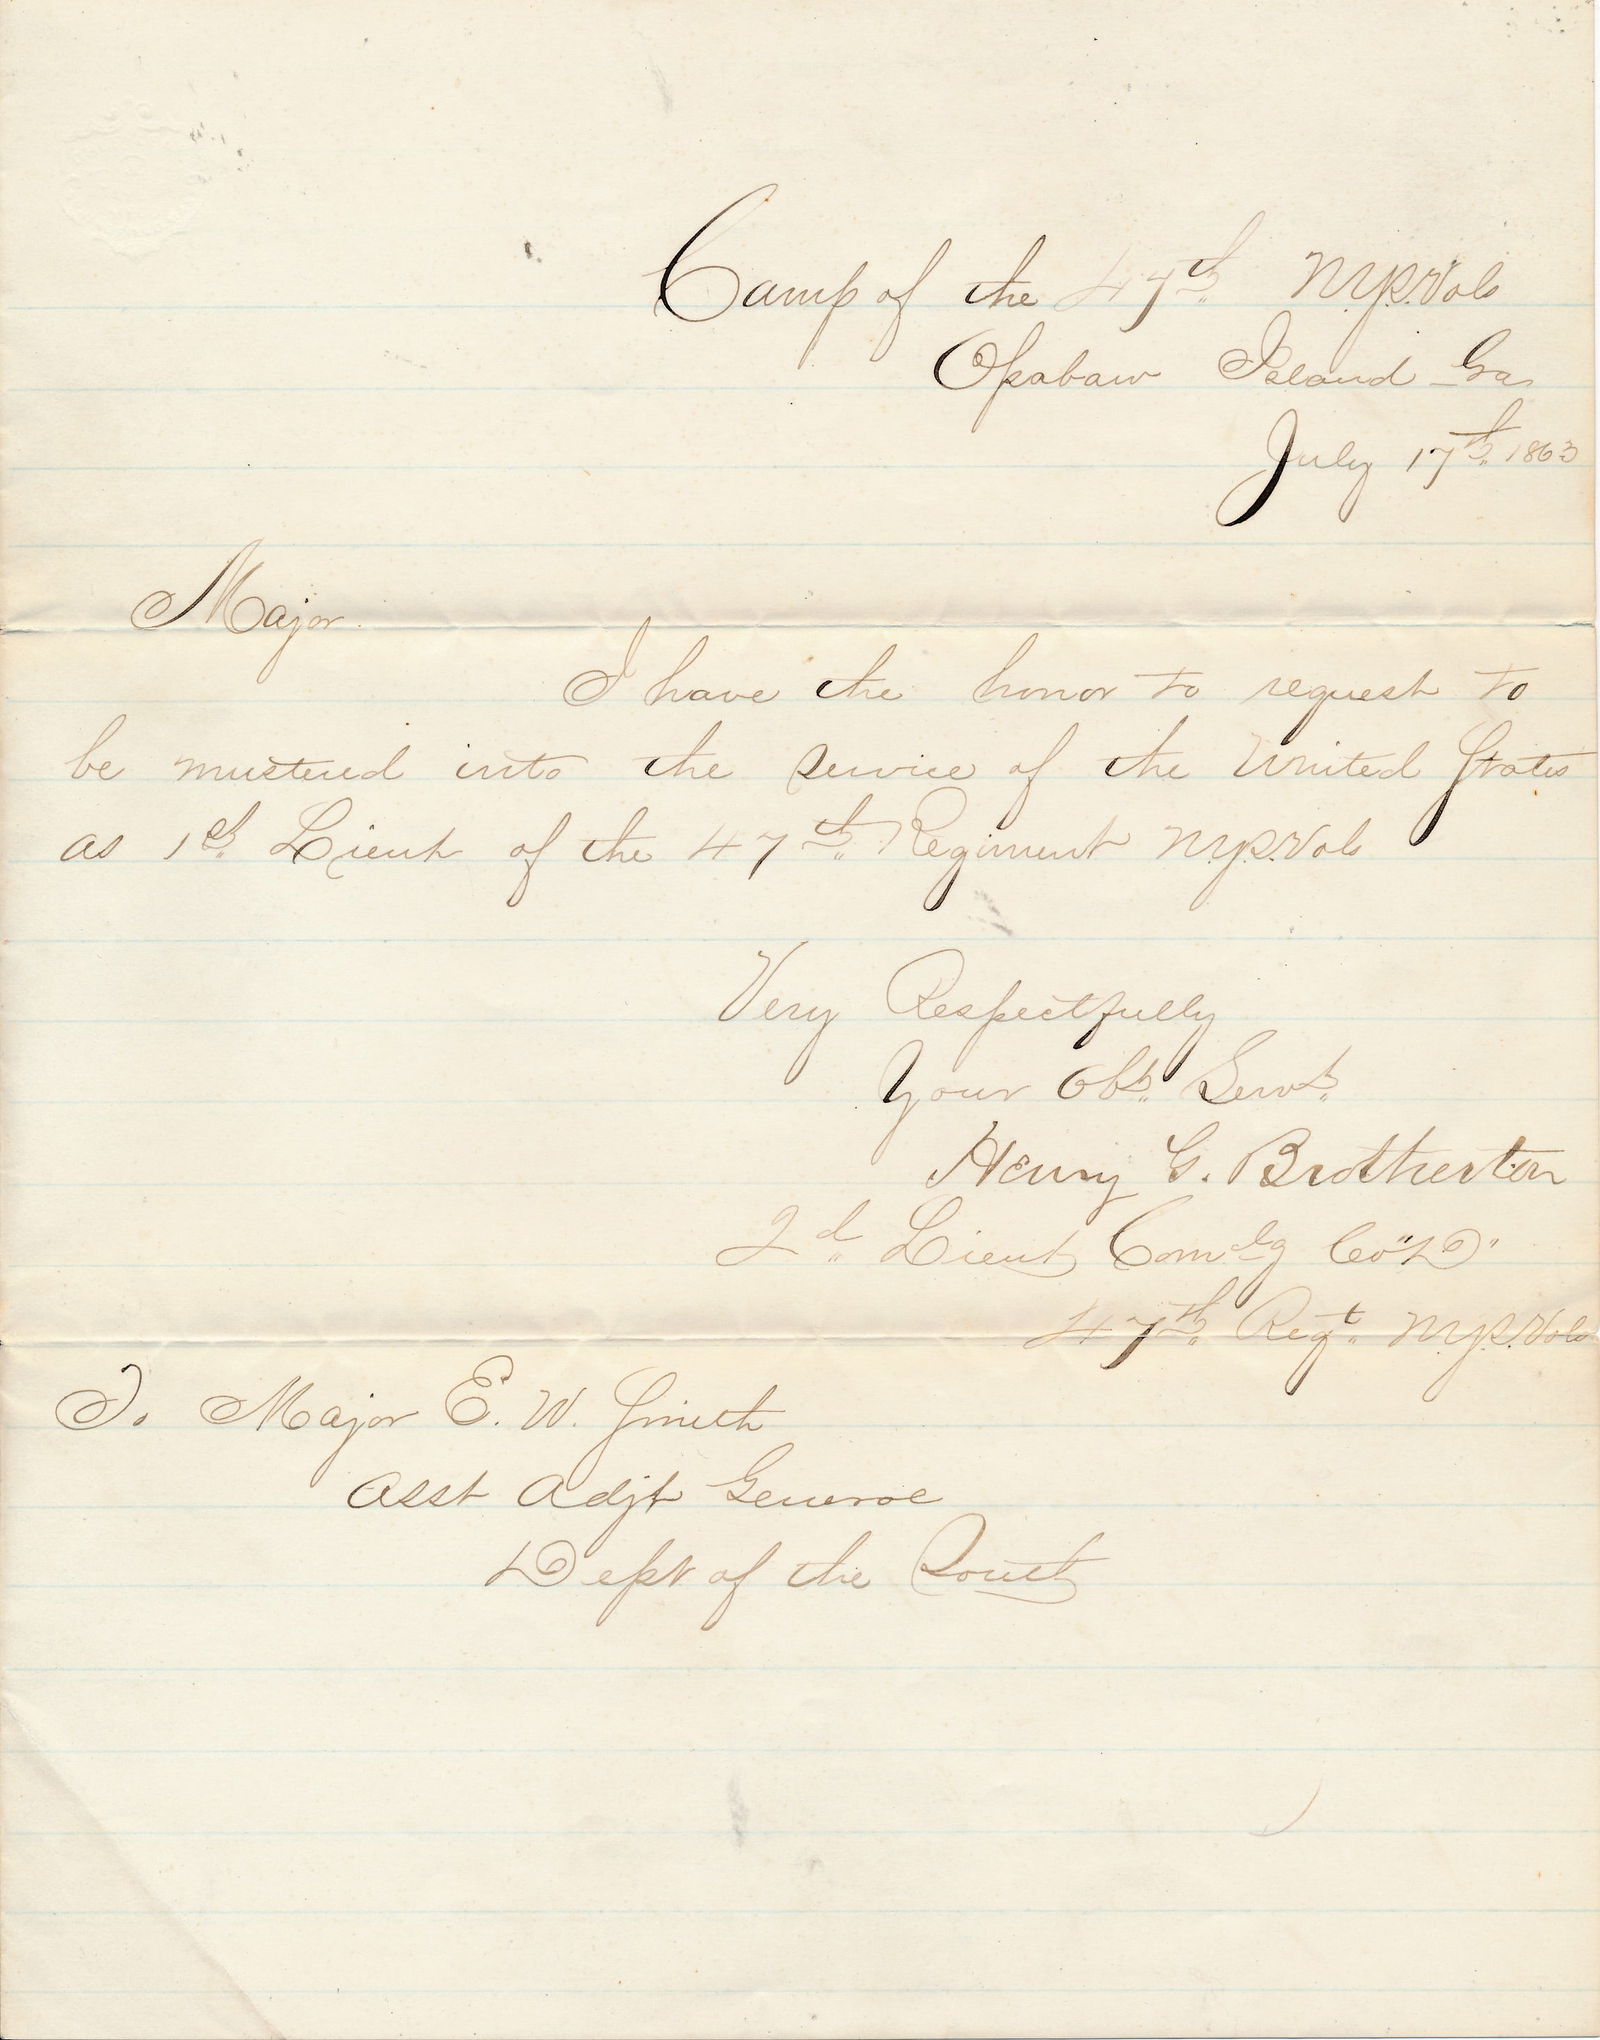 Camp of the 47th N.Y.S. Vols
Ossabaw Island Ga
July 17th 1863
Major.
I have the honor to request to
be mustered into the service of the United States
as 1st Lieut of the 47th Regiment N.Y.S. Vols
Very Respectfully
Your Obt. Servt.
Henry G. Brotherton
2d Lieut Comdg Co "D"
47th Regt. N.Y.S. Vols
To Major E. W. Smith
Asst Adjt General
Dept of the South